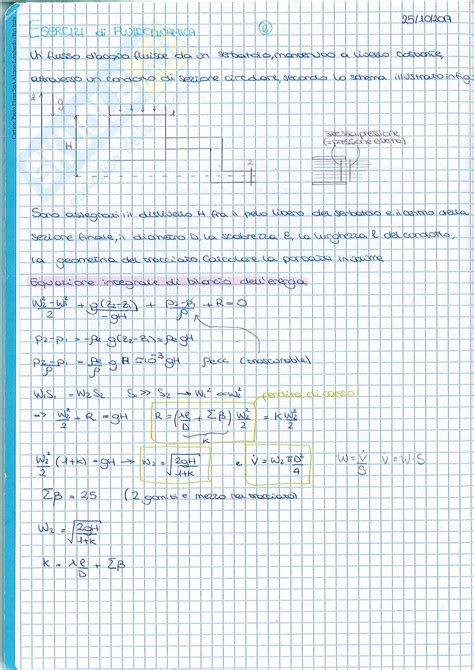 25/10/2017
ESERCIZI di FLUIDODINAMICA
Un flusso d'acqua fluisce da un serbatoio, mantenuto a livello costante,
attraverso un condotto di sezione circolare, secondo lo schema illustrato in fig.
g
H
1
2
stessa pressione
(= pressione esterna)
Sono assegnati: il dislivello H fra il pelo libero del serbatoio e il centro della
sezione finale, il diametro D, la scabrezza ε, la lunghezza l del condotto,
la geometria del tracciato. Calcolare la portata in volume
Equazione integrale di bilancio dell'energia
(W₂² - W₁²)/2 + g(z₂-z₁) + (p₂-p₁)/ρ + R = 0
-gH
p₂-p₁ = -ρₑ g(z₂-z₁) = ρₑ gH
(p₂-p₁)/ρ = ρₑ/ρ gH ≅ 10⁻³ gH
(trascurabile)
W₁S₁ = W₂S₂ S₁ >> S₂ → W₁² << W₂²
perdita di carico
=> W₂²/2 + R = gH R = (λl/D + Σβ) W₂²/2 = k W₂²/2
k
W₂²/2 (1+k) = gH → W₂ = √(2gH/(1+k)) e V̇ = W₂ πD²/4 W = V̇/S V̇ = W·S
Σβ = 25 (2 gomiti e mezzo nel tracciato)
W₂ = √(2gH/(1+k))
k = λl/D + Σβ